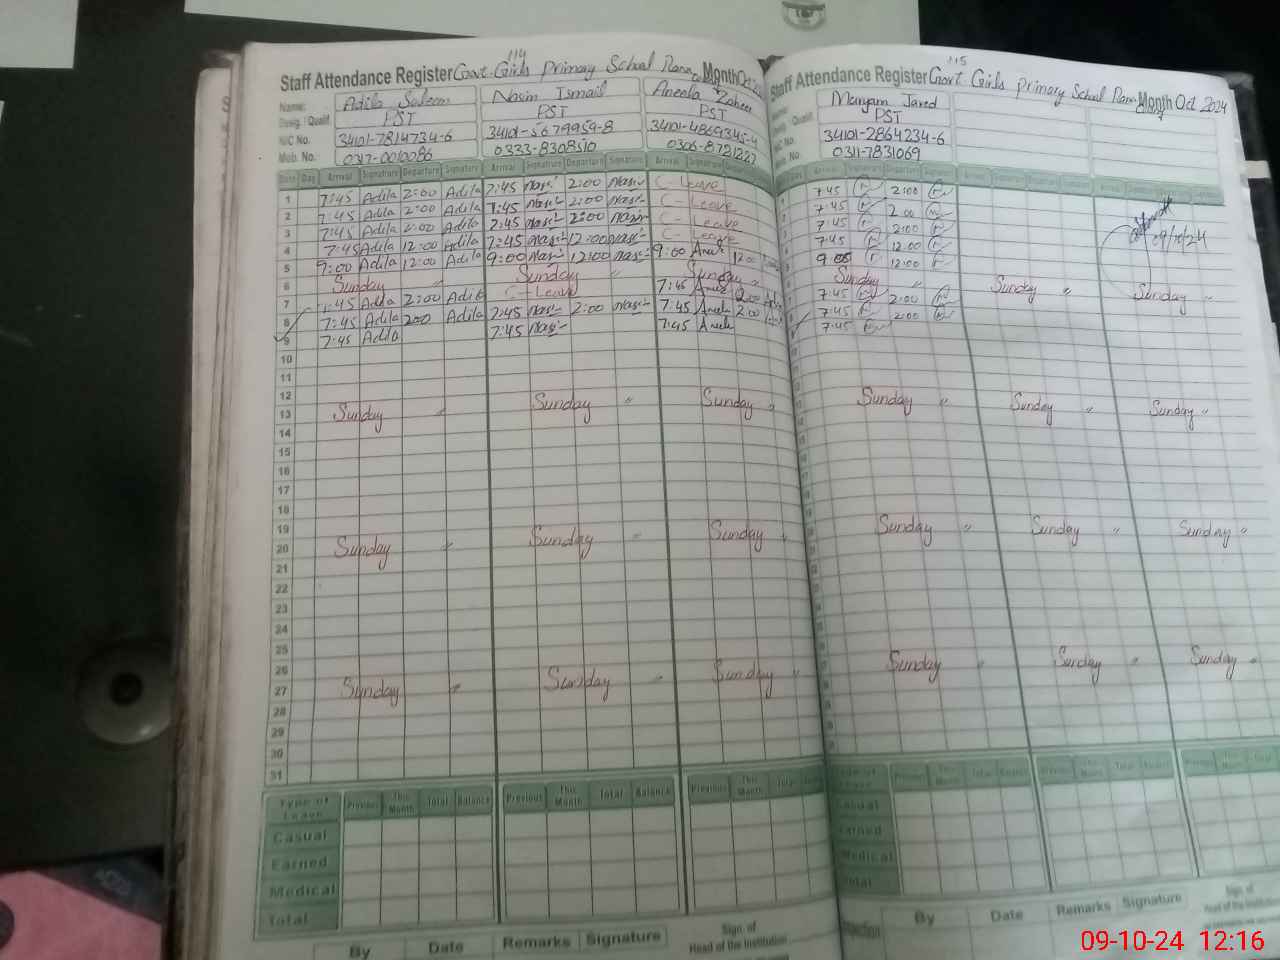 114
Staff Attendance Register Govt. Girls Primary School Month Oct
Name: Adila Saleem Nasim Ismail Aneela
Desig./Qualif. PST PST PST
N/C No. 34101-7814734-6 34101-5679959-8 34101-4869345-4
Mob. No. 0317-0010086 0333-8308510 0306-8721227
Date Day Arrival Signature Departure Signature Arrival Signature Departure Signature Arrival Signature
1 7:45 Adila 2:00 Adila 7:45 Nasi 2:00 Nasi C-Leave
2 7:45 Adila 2:00 Adila 7:45 Nasi 2:00 Nasi C-Leave
3 7:45 Adila 2:00 Adila 7:45 Nasi 2:00 Nasi C-Leave
4 7:45 Adila 12:00 Adila 7:45 Nasi 12:00 Nasi C-Leave
5 9:00 Adila 12:00 Adila 9:00 Nasi 12:00 Nasi 9:00 12:00
6 Sunday " Sunday " Sunday "
7 7:45 Adila 2:00 Adila C-Leave 7:45 2:00
8 7:45 Adila 2:00 Adila 7:45 Nasi 2:00 Nasi 7:45 Aneela 2:00
9 7:45 Adila 7:45 Nasi 7:45 Aneela
10
11
12
13 Sunday " Sunday " Sunday "
14
15
16
17
18
19
20 Sunday " Sunday " Sunday "
21
22
23
24
25
26
27 Sunday " Sunday " Sunday "
28
29
30
31
Type of Leave Previous This Month Total Balance Previous This Month Total Balance Previous This Month Total
Casual
Earned
Medical
Total
By Date Remarks Signature Sign. of
Head of the Institution
115
Staff Attendance Register Govt Girls Primary School Month Oct 2024
Maryam Javed
Qualif. PST
N/C No. 34101-2864234-6
Mob. No. 0311-7831069
7:45 2:00
7:45 2:00
7:45 2:00
7:45 12:00
9:00 12:00
09/10/24
Sunday " Sunday " Sunday "
7:45 2:00
7:45 2:00
7:45
Sunday " Sunday " Sunday "
Sunday " Sunday " Sunday "
Sunday " Sunday " Sunday "
Previous This Month Total Previous This Month Total Previous This Month Total
Casual
Earned
Medical
Total
By Date Remarks Signature Sign. of
Head of the Institution
09-10-24 12:16